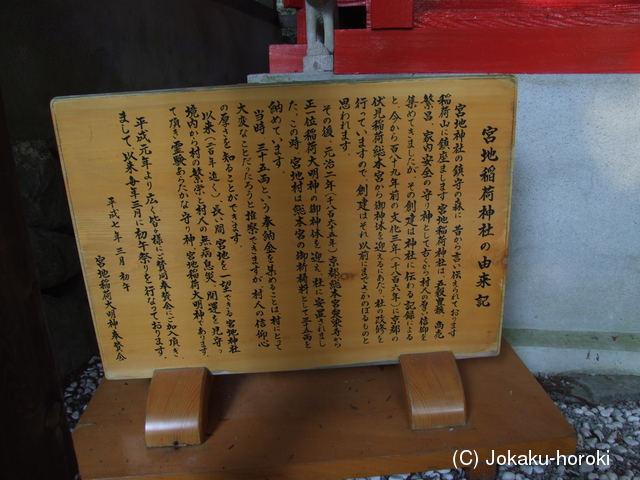 宮地稲荷神社の由来記
宮地神社の鎮守の森に昔から言い伝えられております
稲荷山に鎮座まします宮地稲荷神社は、五穀豊穣 商売
繁昌 家内安全の守り神として古くから村人の厚い信仰を
集めてきましたが、その創建は神社に伝わる記録による
と、今から百八十九年前の文化三年(千八百六年)に京都の
伏見稲荷総本宮から御神体を迎えるにあたり、社の改修を
行っていますので、創建はそれ以前にまでさかのぼるものと
思われます。
その後、元治二年(千八百六十五年)京都総本宮愛染寺から
正一位稲荷大明神の御神体を迎え 社に安置されまし
た。この時 宮地村は総本宮の御祈祷料として 三十五両を
納めています。
当時 三十五両という奉納金を集めることは村にとって
大変なことだったろうと推察できますが、村人の信仰心
の厚さを知ることができます。
以来(百年近く)、長い間 宮地を一望できる宮地神社
境内から村の繁栄と村人の無病息災、開運を見守っ
て頂き 霊験あらたかな守り神 宮地稲荷大明神であります。
平成元年より広く皆々様にご賛同 奉賛会にご加入頂き、
まして、以来毎年三月に初午祭りを行なっております。
平成七年 三月 初午
宮地稲荷大明神奉賛会
(C) Jokaku-horoki